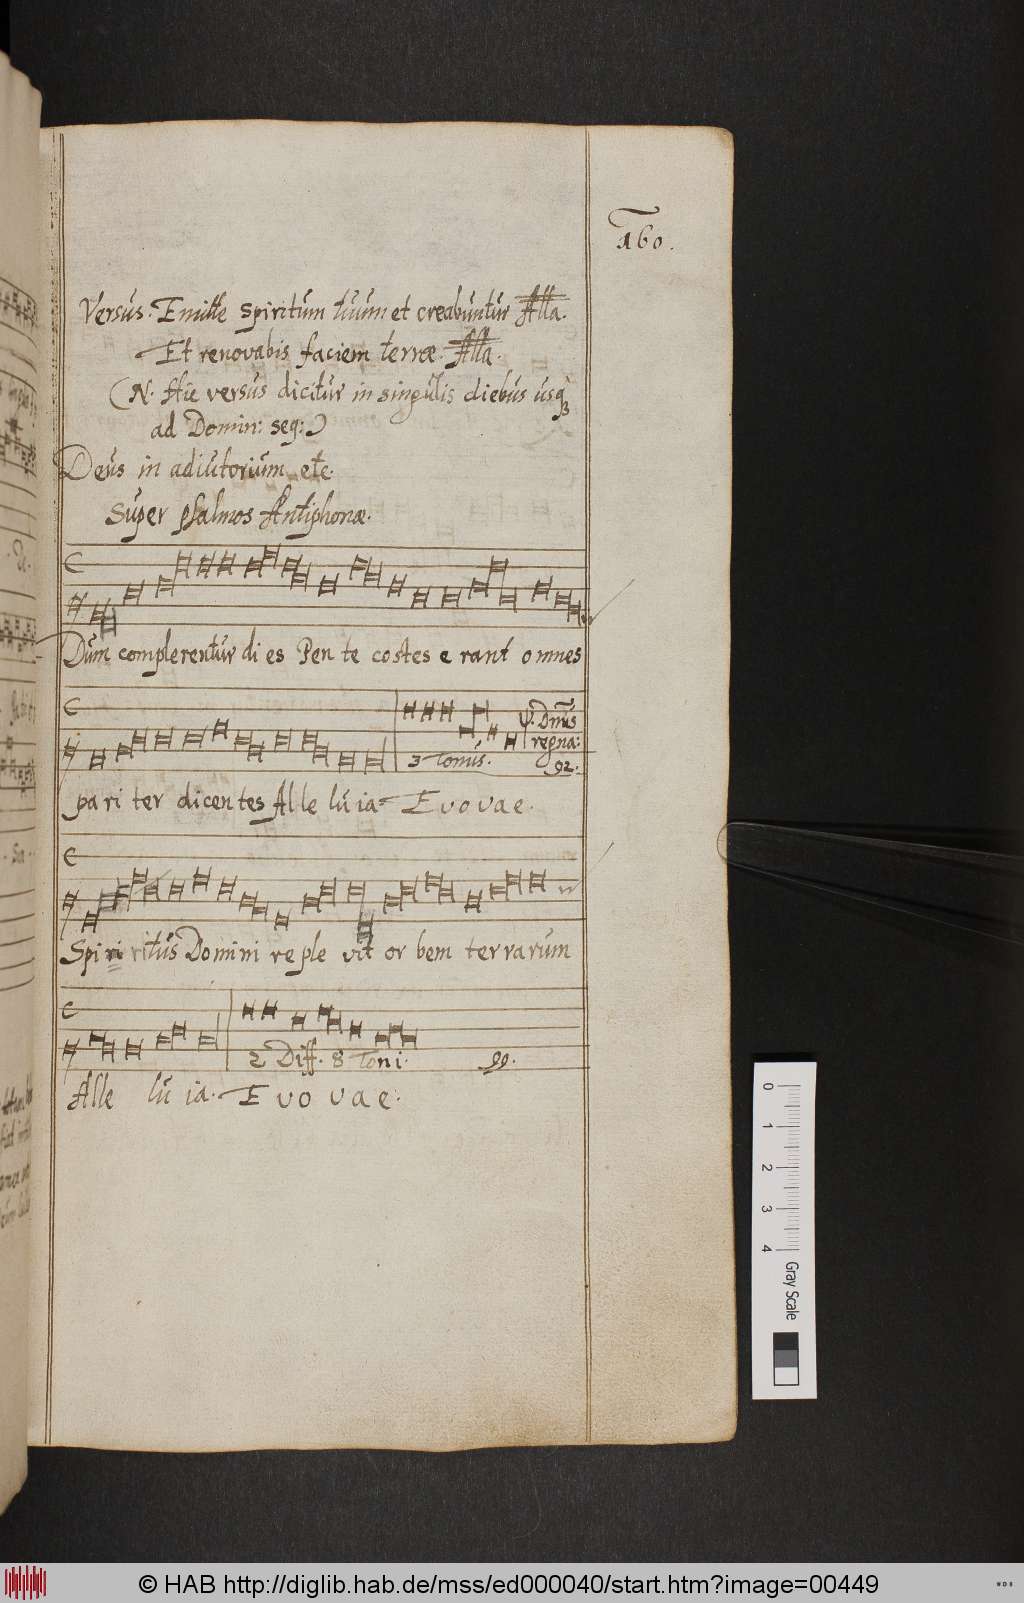 160.
Versus. Emitte spiritum tuum et creabuntur Alla.
Et renovabis faciem terræ. Alla.
(N. Hic versus dicitur in singulis diebus usq
ad Domin: seq:)
Deus in adiutorium etc.
Super psalmos Antiphonæ.
Dum complerentur di es Pen te costes e rant omnes
3 Tonus. V. Dnus
regna:
92.
pa ri ter dicentes Al le lu ia Evovae.
Spi ri ritus Domini re ple vit or bem ter rarum
2 Diff. 8 Toni. 99.
Alle lu ia. E vo vae.
0 1 2 3 4 Gray Scale
© HAB http://diglib.hab.de/mss/ed000040/start.htm?image=00449